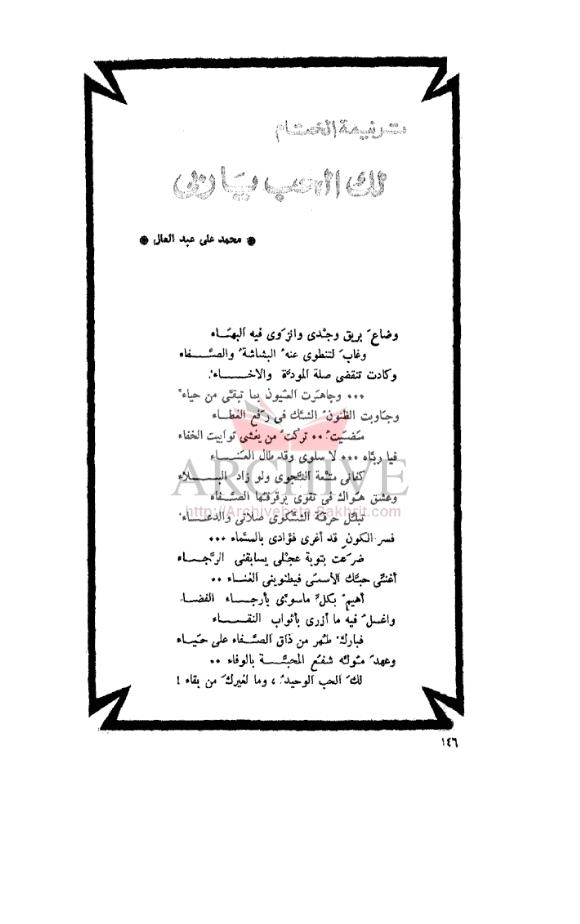 ترنيمة الختام
لك الحب يا ربى
● محمد على عبد العال ●
وضاعَ بريق وجدى وانزوى فيه البهاء
وغابَ لتنطوى عنهُ البشاشةُ والصفاء
وكادت تنقضى صلة المودة والاخاء
... وجاهرت العيون بما تبقى من حياء
وجاوبت الظنون الشك فى رفع الغطاء
مضيت .. تركت من يغشى توابيت الخفاء
فيا رباه ... لا سلوى وقد طال العناء
كفانى متعة النجوى ولو زاد البلاء
وعشق هواك فى تقوى يرقرقها الصفاء
تبتل حرقة الشكوى صلاتى والدعاء
فسر الكون قد أغرى فؤادى بالسماء ...
ضرعت بتوبة عجلى يسابقنى الرجاء
أغنى حبك الأسمى فيطوينى الغناء ..
أهيم بكل ماسوى بأرجاء الفضاء
واغسل فيه ما أزرى بأثواب النقاء
فبارك طهر من ذاق الصفاء على حياء
وعهد موله شفع المحبة بالوفاء ..
لكَ الحب الوحيد ، وما لغيركَ من بقاء !
ARCHIVE
http://Archivebeta.Sakhrit.com
١٤٦